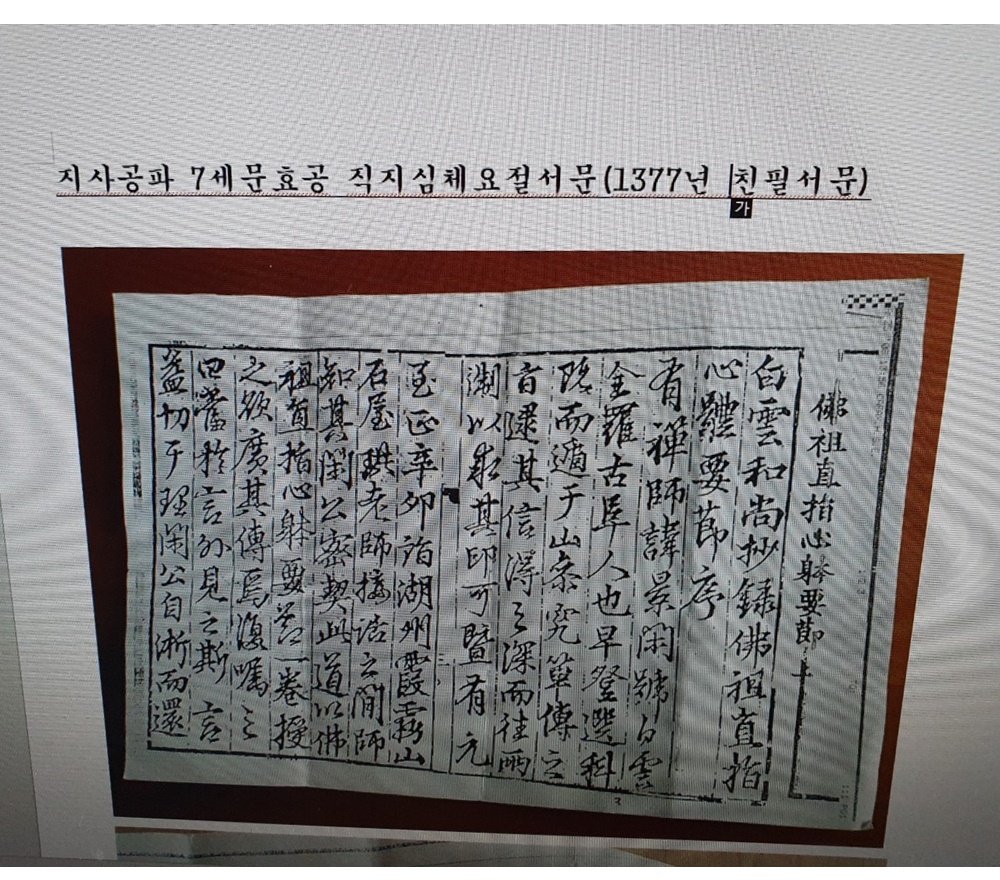 지사공파 7세문효공 직지심체요절서문(1377년 친필서문)
가
佛祖直指心躰要節
白雲和尚抄録佛祖直指
心體要節序
有禪師諱景閑號白雲
全羅古阜人也早登選科
既而遁于山叅究單傳之
盲逮其信得之深而徃兩
淛以求其印可曁有元
至正辛卯詣湖州霞霧山
石屋珙老師接話之間師
知其閑公密契此道以佛
祖直指心躰要莭一卷授
之欲廣其傳焉復囑之
曰當於言外見之斯言
盖切于理閑公自淛而還